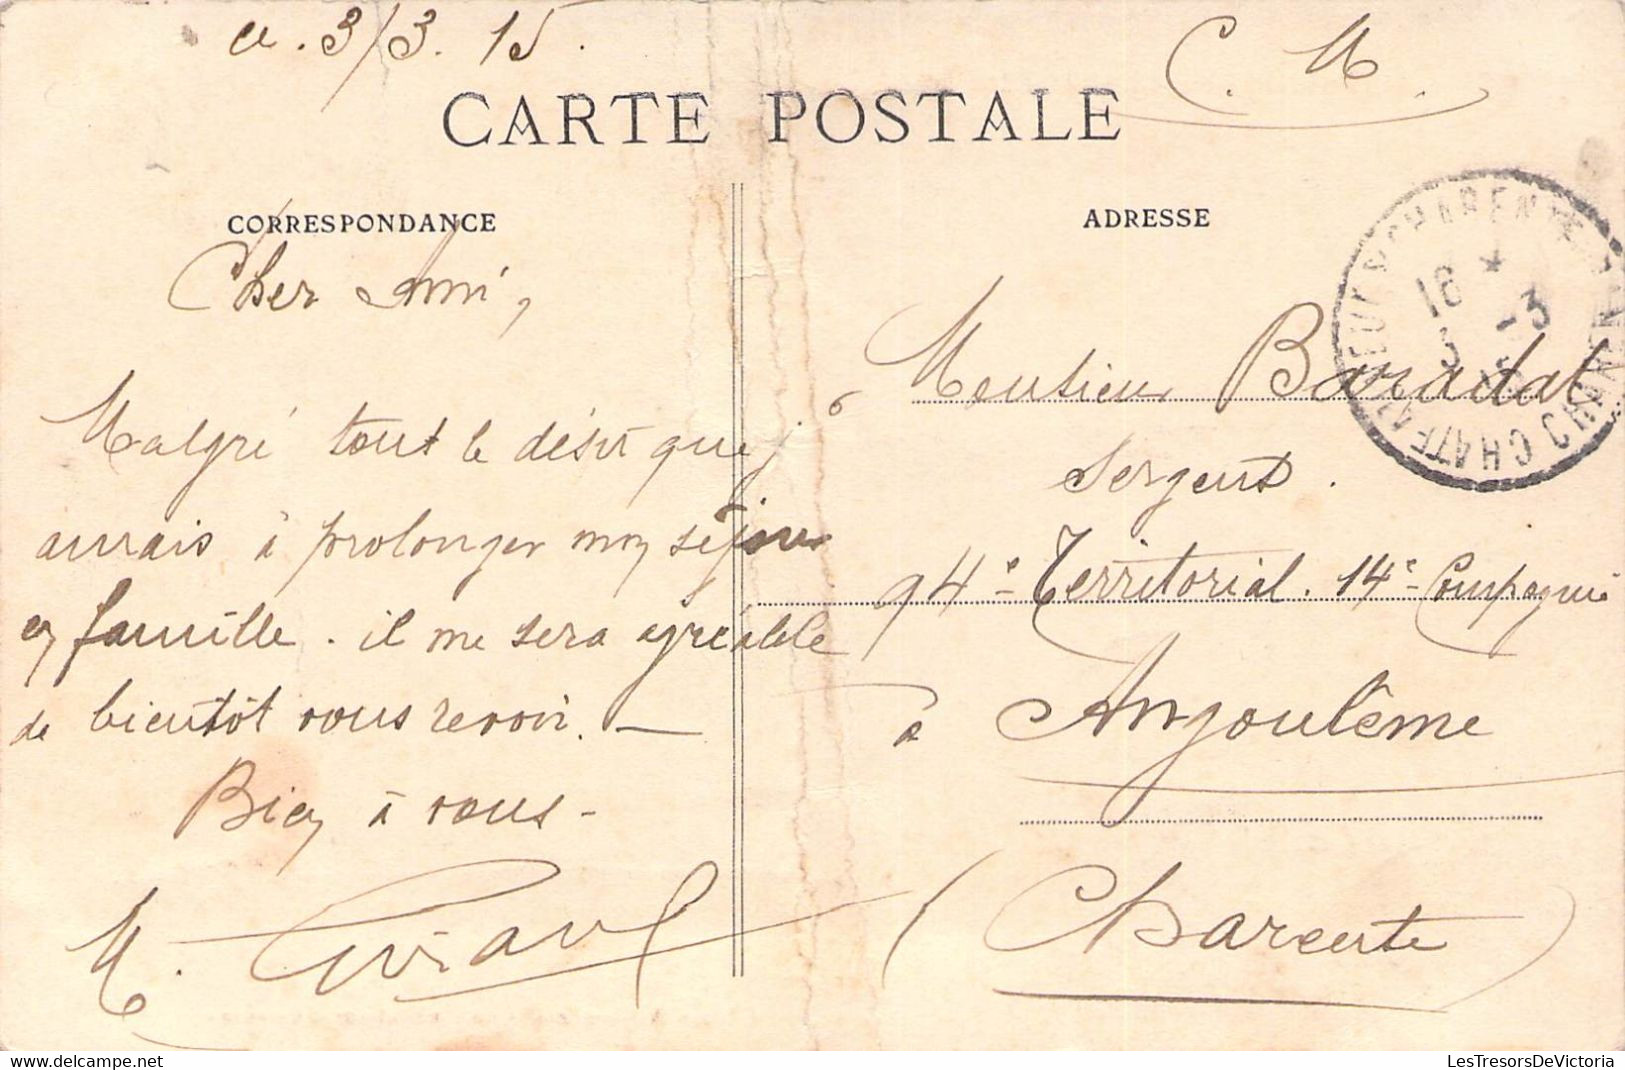 ce. 3/3. 15.
C. M.
CARTE POSTALE
CORRESPONDANCE
ADRESSE
Cher Ami,
Malgré tout le désir que j'
aurais à prolonger mon séjour
en famille. il me sera agréable
de bientôt vous revoir. —
Bien à vous -
M.
Monsieur Baradat
Sergent.
94e Territorial. 14e Compagnie
à Angoulême
(Charente)
16 * 3 - 3
CHATEAUNEUF S CHARENTE
CHARENTE
www.delcampe.net
LesTresorsDeVictoria